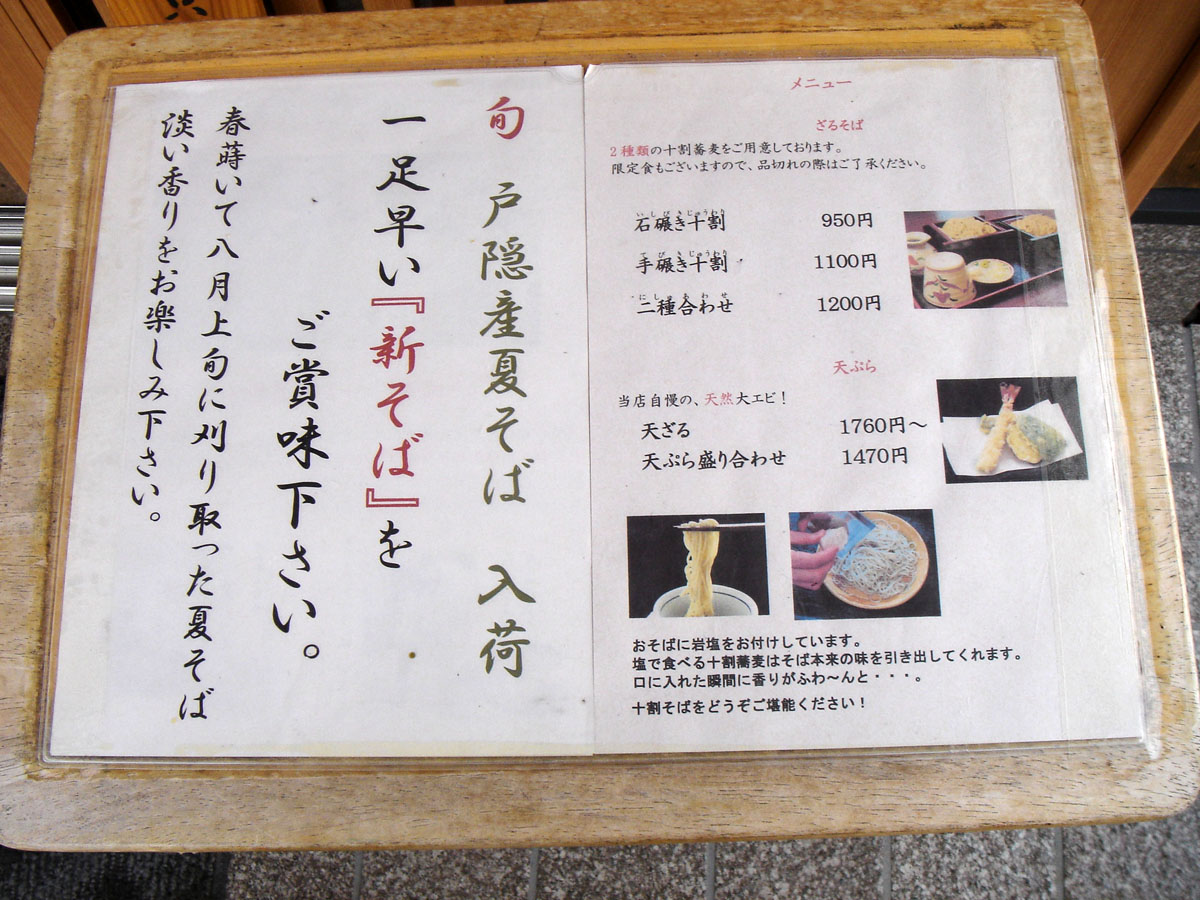 旬 戸隠産夏そば 入荷
一足早い『新そば』を
ご賞味下さい。
春蒔いて八月上旬に刈り取った夏そば
淡い香りをお楽しみ下さい。
メニュー
ざるそば
2種類の十割蕎麦をご用意しております。
限定食もございますので、品切れの際はご了承ください。
いしびきじゅうわり
石碾き十割 950円
てびきじゅうわり
手碾き十割 1100円
にしゅあわせ
二種合わせ 1200円
天ぷら
当店自慢の、天然大エビ！
天ざる 1760円～
天ぷら盛り合わせ 1470円
おそばに岩塩をお付けしています。
塩で食べる十割蕎麦はそば本来の味を引き出してくれます。
口に入れた瞬間に香りがふわ～んと・・・。
十割そばをどうぞご堪能ください！